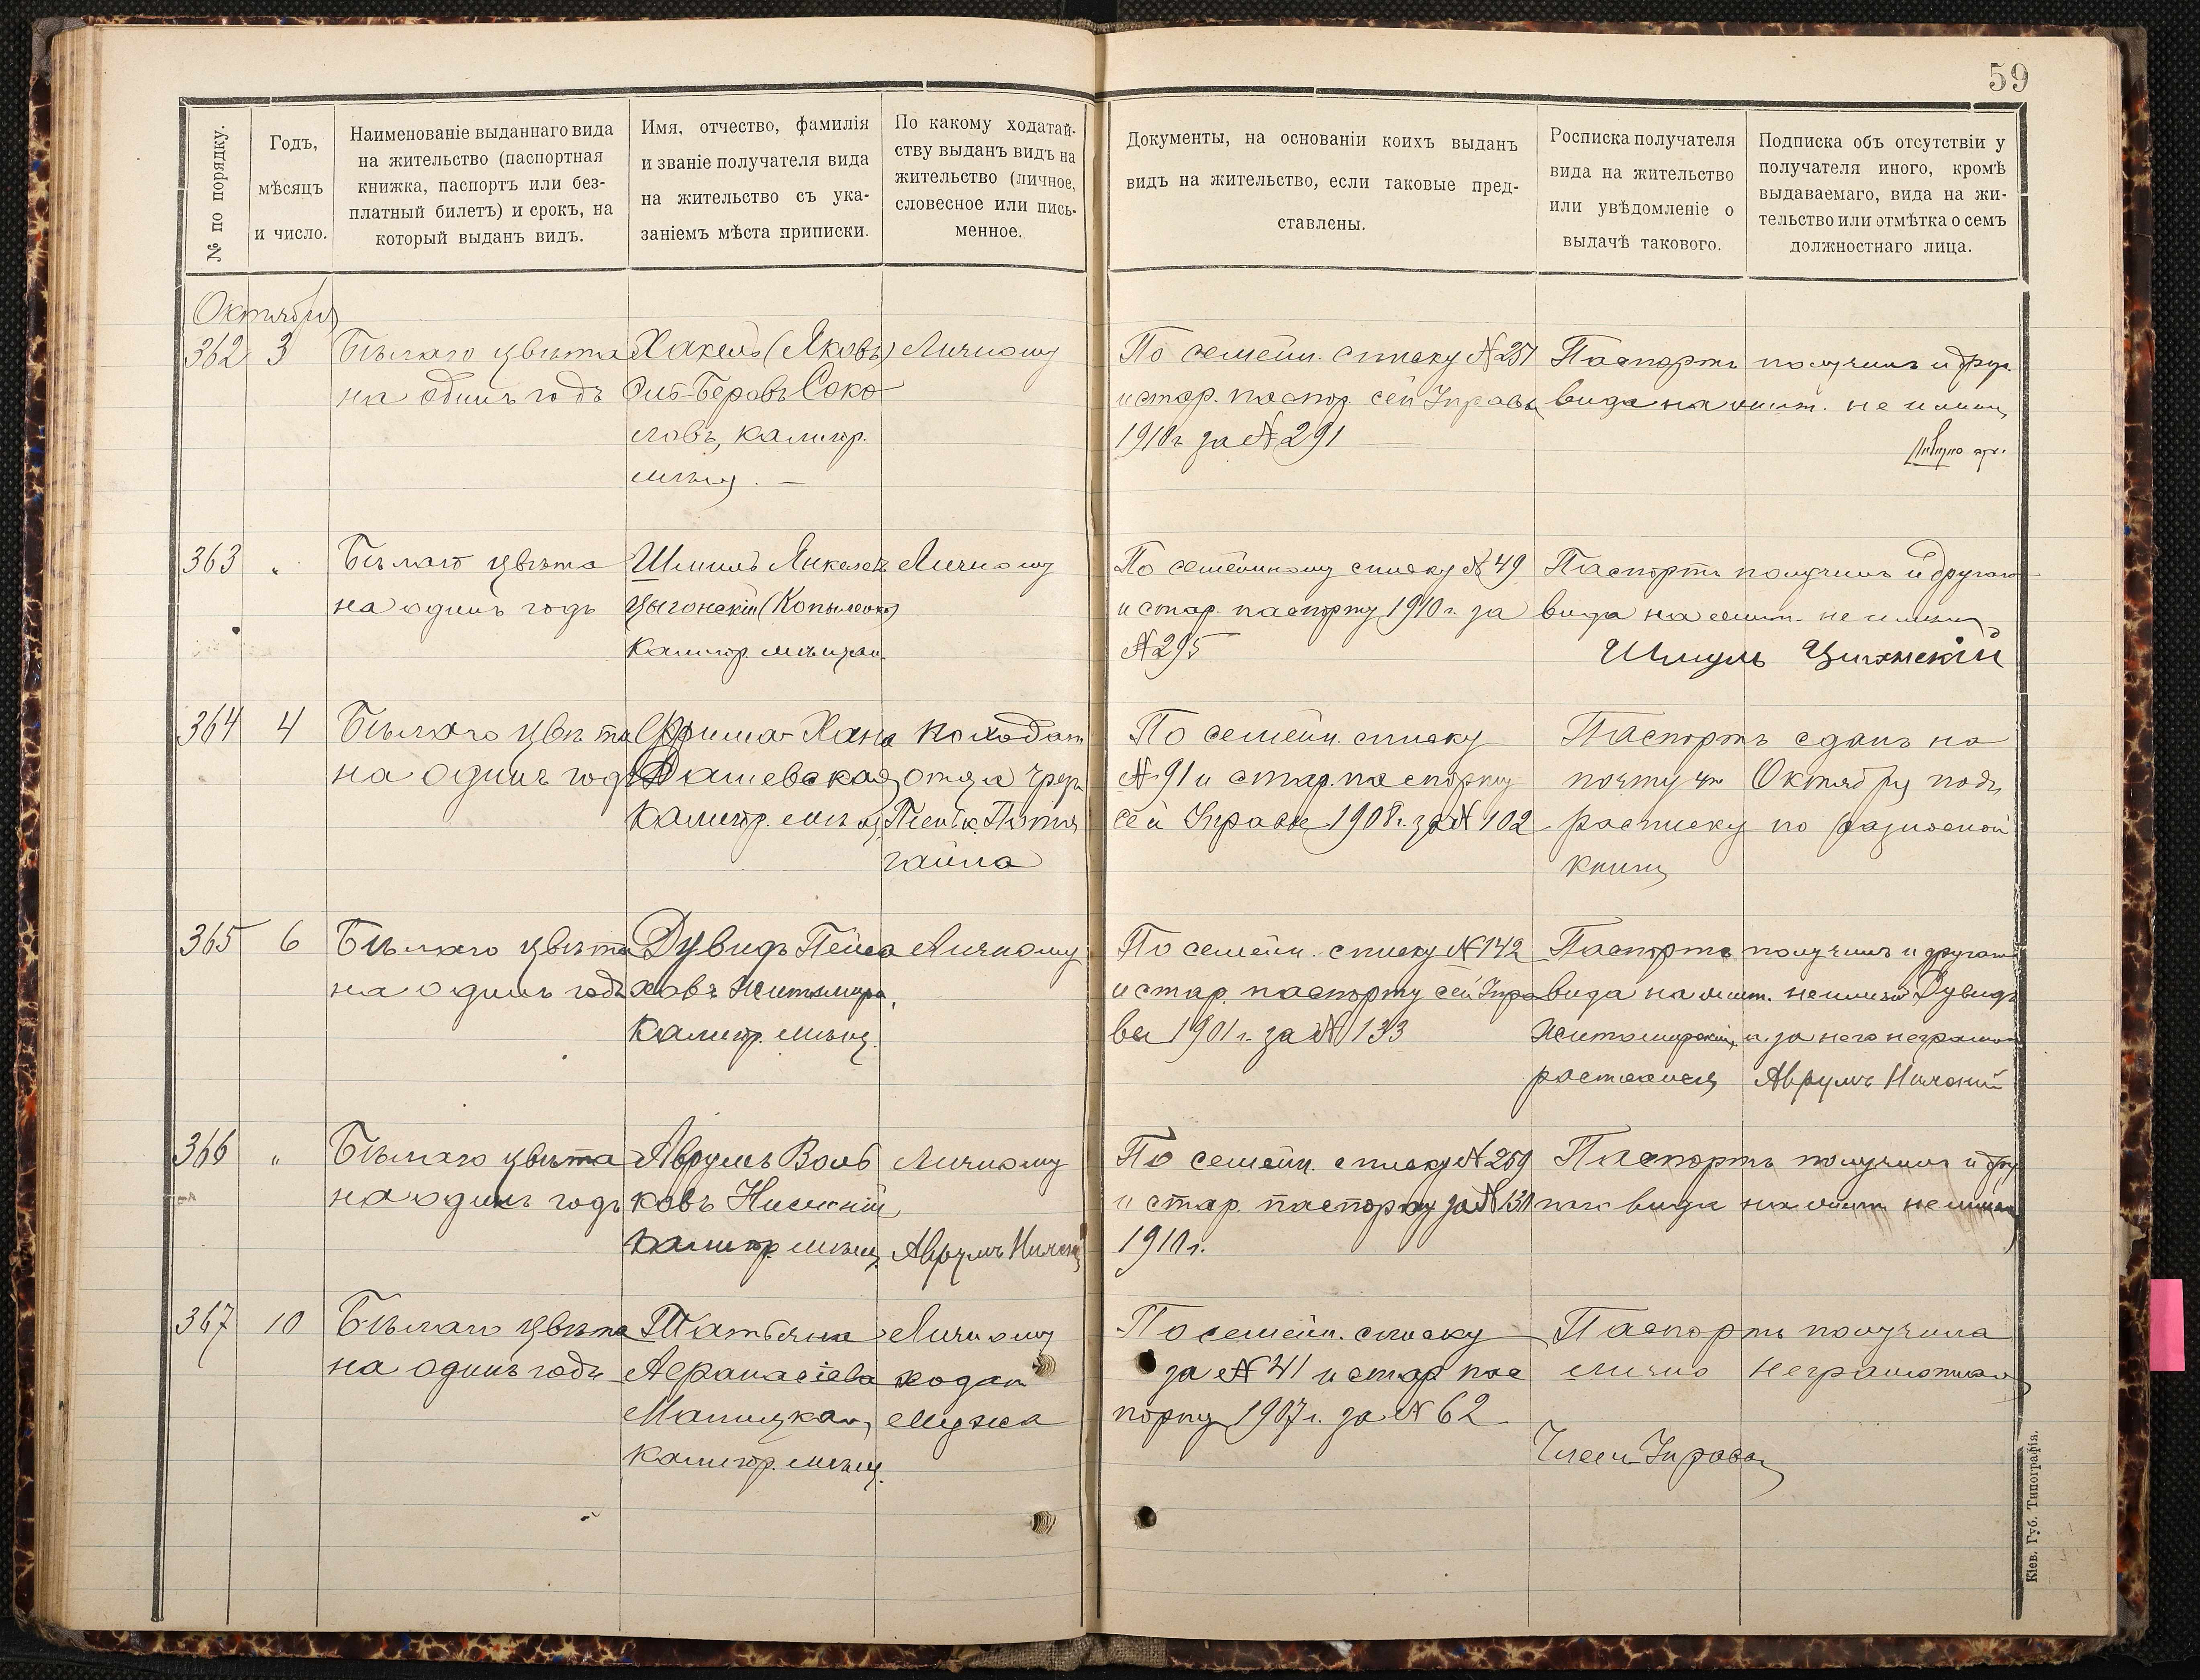 59
№ по порядку.
Годъ,
мѣсяцъ
и число.
Наименованіе выданнаго вида
на жительство (паспортная
книжка, паспортъ или без-
платный билетъ) и срокъ, на
который выданъ видъ.
Имя, отчество, фамилія
и званіе получателя вида
на жительство съ ука-
заніемъ мѣста приписки.
По какому ходатай-
ству выданъ видъ на
жительство (личное,
словесное или пись-
менное.
Документы, на основаніи коихъ выданъ
видъ на жительство, если таковые пред-
ставлены.
Росписка получателя
вида на жительство
или увѣдомленіе о
выдачѣ такового.
Подписка объ отсутствіи у
получателя иного, кромѣ
выдаваемаго, вида на жи-
тельство или отмѣтка о семъ
должностнаго лица.
Октября
362 3
Бѣлаго цвѣта
на одинъ годъ
(Яковъ)
Беровъ Соко
ловъ, калигор.
мѣщ. —
Личному
По семейн. списку № 257
и стар. паспор. сей Управы
1910 г за № 291
Паспортъ получилъ и друг.
вида на жит. не имѣю
363 "
Бѣлаго цвѣта
на одинъ годъ
Шмиль Янкелевъ
Цыгонскій (Копыленко)
Калигор. мѣщан.
Личному
По семейному списку № 49
и стар. паспорту 1910 г. за
№ 295
Паспортъ получилъ и другого
вида на жит. не имѣю
Шмуль Цигонскій
364 4
Бѣлаго цвѣта
на одинъ годъ
Фрима-Хана
Дашевская
Калигор. мѣщ.
по ходат.
отца чрезъ
гайла
По семейн. списку
№ 91 и стар. паспорту
сей Управы 1908 г. за № 102
Паспортъ сданъ на
почту 4го Октября подъ
расписку по разносной
книгѣ
365 6
Бѣлаго цвѣта
на одинъ годъ
Дувидъ Пейса
ховъ Житомирс.
Калигор. мѣщ.
Личному
По семейн. списку № 142
и стар. паспорту сей Упра
вы 1901 г. за № 133
Паспортъ получилъ и другого
вида на жит. не имѣю Дувидъ
Житомирскій, а за него неграмот.
расписался Аврумъ
366 "
Бѣлаго цвѣта
на одинъ годъ
Аврумъ Воль
ковъ
Калигор. мѣщ.
Личному
Аврумъ
По семейн. списку № 259
и стар. паспорту за № 130
1910 г.
Паспортъ получилъ и дру
гого вида на жит. не имѣю
367 10
Бѣлаго цвѣта
на одинъ годъ
Татьяна
Афанасіева
Калигор. мѣщ.
Личному
ходат.
мужа
По семейн. списку
за № 41 и стар. пас
порту 1907 г. за № 62
Паспортъ получила
лично неграмотная
Членъ Управы
Кіев. Губ. Типографія.